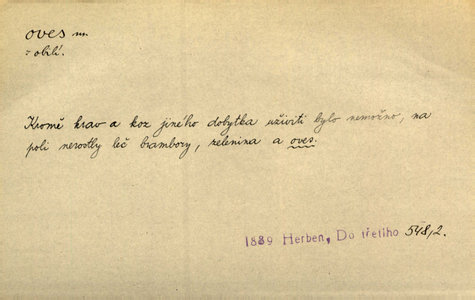 oves m.
: obilí.
Kromě krav a koz jiného dobytka uživiti bylo nemožno, na
poli nerostly leč brambory, zelenina a oves.
1889 Herben, Do třetího 548,2.